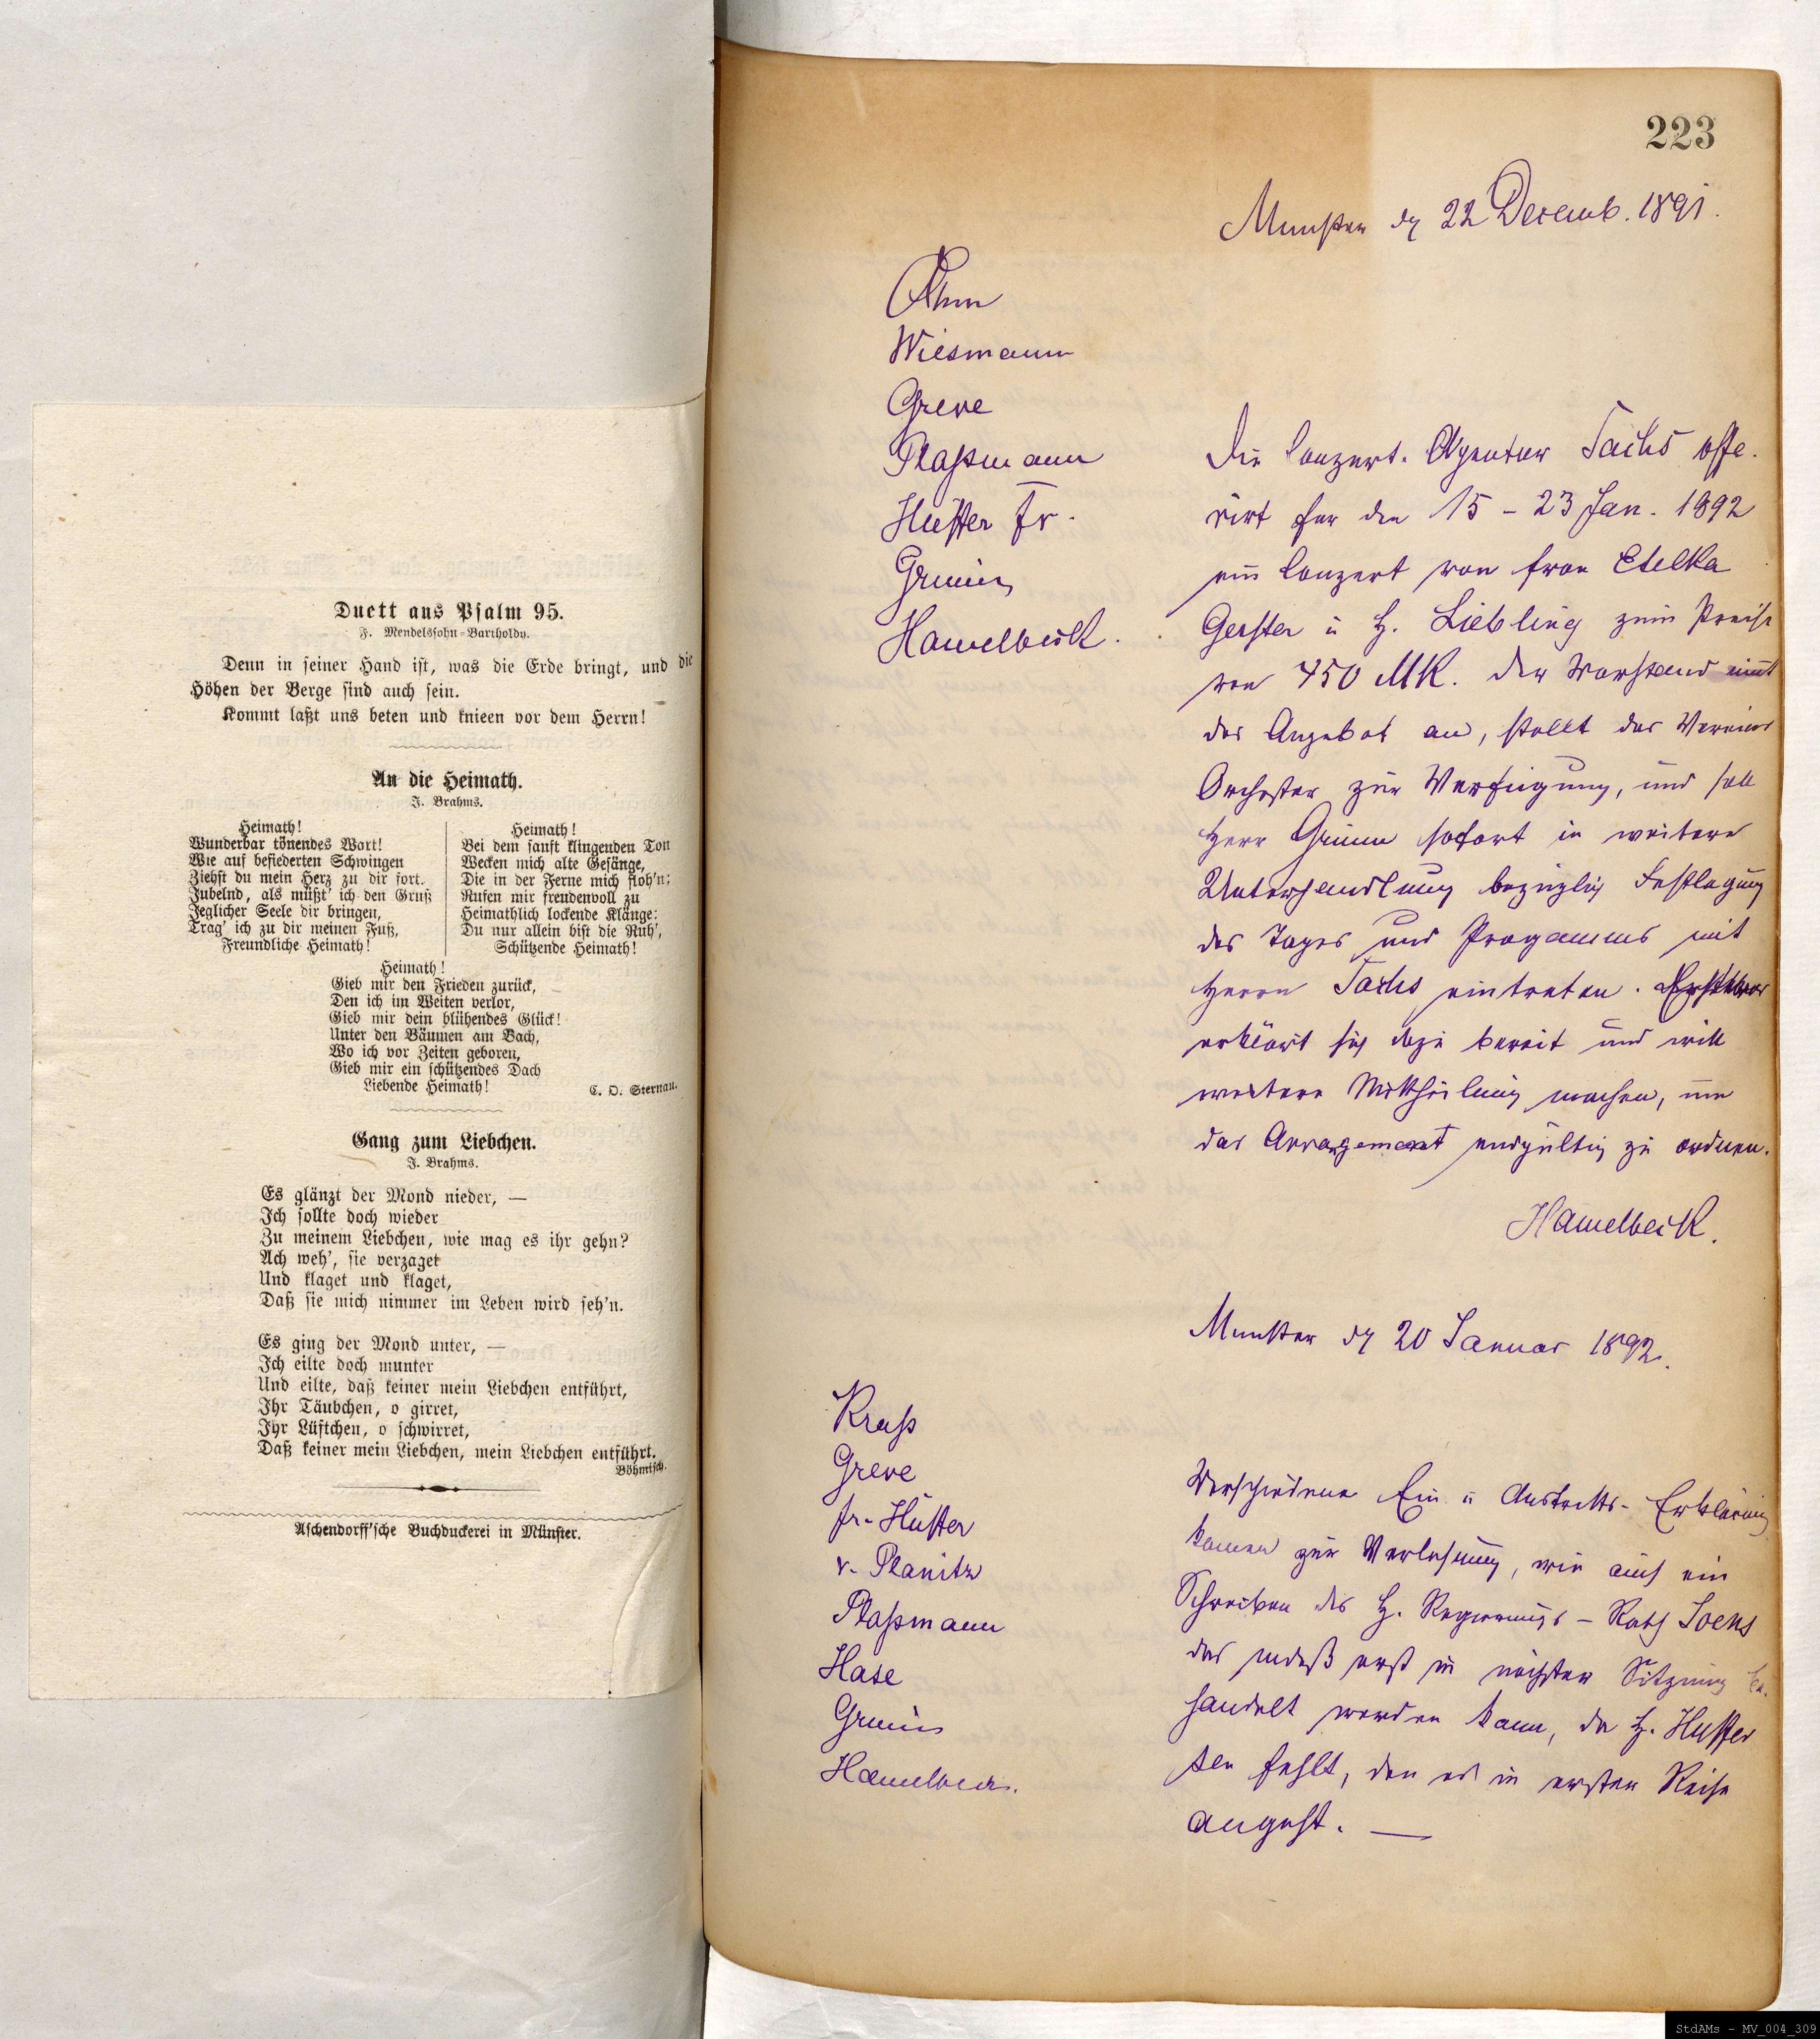 Duett aus Psalm 95.
F. Mendelssohn-Bartholdy.
Denn in seiner Hand ist, was die Erde bringt, und die
Höhen der Berge sind auch sein.
Kommt laßt uns beten und knieen vor dem Herrn!
An die Heimath.
J. Brahms.
Heimath!
Wunderbar tönendes Wort!
Wie auf befiederten Schwingen
Ziehst du mein Herz zu dir fort.
Jubelnd, als müßt' ich den Gruß
Jeglicher Seele dir bringen,
Trag' ich zu dir meinen Fuß,
Freundliche Heimath!
Heimath!
Bei dem sanft klingenden Ton
Wecken mich alte Gesänge,
Die in der Ferne mich floh'n;
Rufen mir freudenvoll zu
Heimathlich lockende Klänge:
Du nur allein bist die Ruh',
Schützende Heimath!
Heimath!
Gieb mir den Frieden zurück,
Den ich im Weiten verlor,
Gieb mir dein blühendes Glück!
Unter den Bäumen am Bach,
Wo ich vor Zeiten geboren,
Gieb mir ein schützendes Dach
Liebende Heimath!
C. O. Sternau.
Gang zum Liebchen.
J. Brahms.
Es glänzt der Mond nieder, —
Ich sollte doch wieder
Zu meinem Liebchen, wie mag es ihr gehn?
Ach weh', sie verzaget
Und klaget und klaget,
Daß sie mich nimmer im Leben wird seh'n.
Es ging der Mond unter, —
Ich eilte doch munter
Und eilte, daß keiner mein Liebchen entführt,
Ihr Täubchen, o girret,
Ihr Lüftchen, o schwirret,
Daß keiner mein Liebchen, mein Liebchen entführt.
Böhmisch.
Aschendorff'sche Buchduckerei in Münster.
223
Munster dn 22 Decemb. 1891.
Ohm
Wiesmann
Greve
Plaßmann
Hüffer Fr.
Grimm
Hamelbeck.
Die Conzert-Agentur Sachs offe-
rirt fur den 15 - 23 Jan. 1892
ein Conzert von Frau Etelka
Gerster u H. Liebling zum Preise
von 450 MK. Der Vorstand nimt
das Angebot an, stellt das Vereins
Orchester zur Verfügung, und soll
Herr Grimm sofort in weitere
Unterhandlung bezüglich Festlegung
des Tages und Progamms mit
Herrn Sachs eintreten. Ersterer
erklärt sich dazu bereit und will
weitere Mittheilung machen, um
das Arragement endgültig zu ordnen.
Hamelbeck.
Munster dn 20 Januar 1892.
Kraß
Greve
Fr. Hüffer
v. Planitz
Plaßmann
Hase
Grimm
Hamelbeck.
Verschiedene Ein u Austritts-Erklärung
kamen zur Verlesung, wie auch ein
Schreiben des H. Regierungs-Rath Loens
das indeß erst in nächster Sitzung be-
handelt werden kann, da H. Huffer
fehlt, den es in erster Reihe
angeht. —
StdAMs - MV_004_309